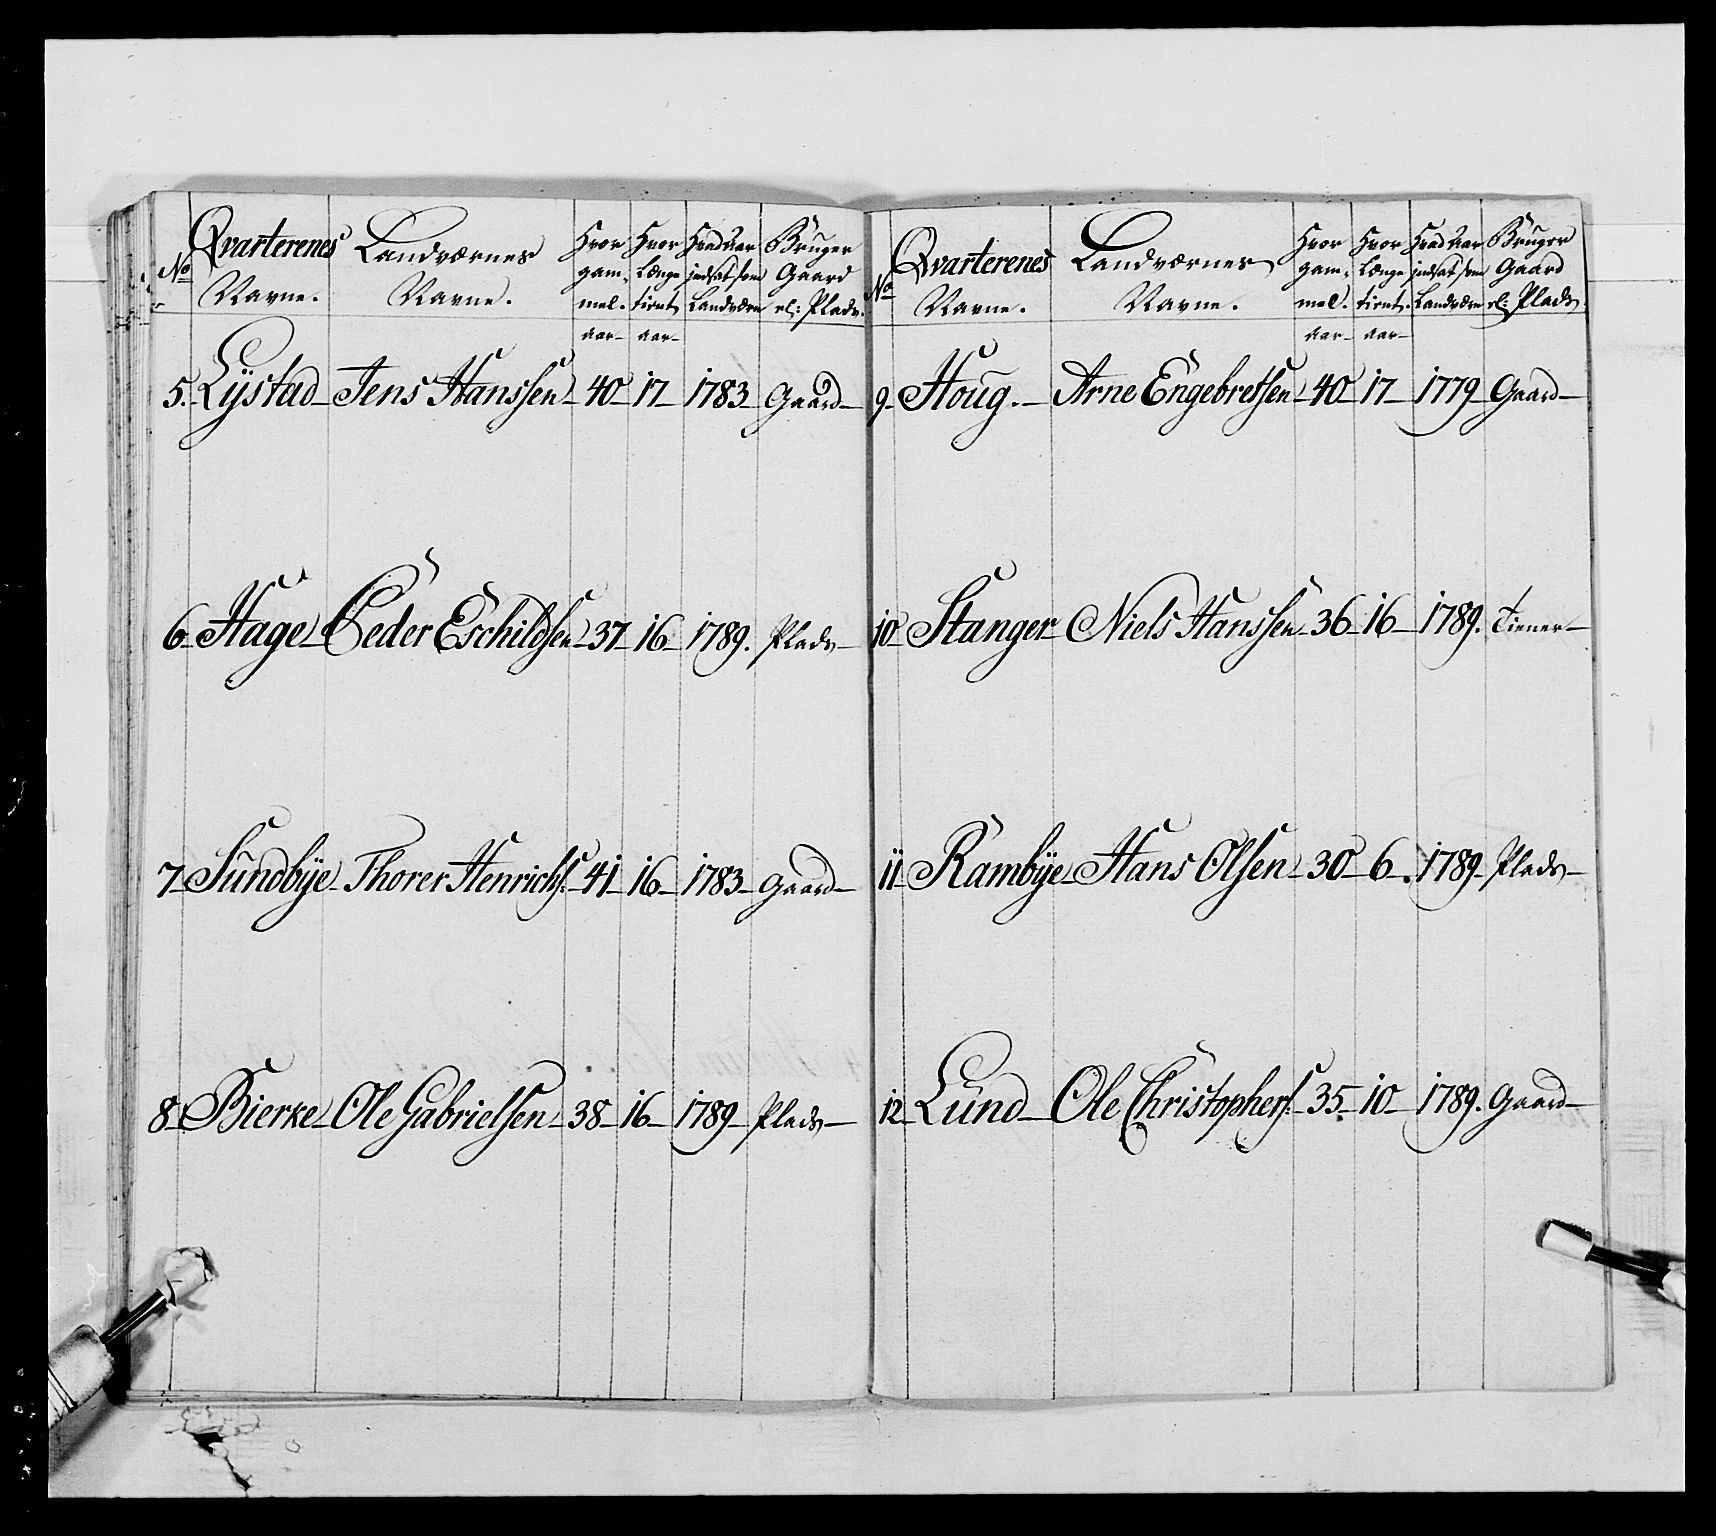 No Qvarterenes Navne. Landværnes Navne. Hvor gam- mel. aar Hvor Længe tient aar Hvad Aar indsat som Landværn Bruger Gaard el: Plads.
5. Lystad Jens Hanssen 40 17 1783 Gaard
6 Hage Peder Eschildsen 37 16 1789. Plads
7 Sundbÿe Thorer Henrichs: 41 16 1783 Gaard
8 Bierke Ole Gabrielsen 38 16 1789 Plads
No Qvarterenes Navne. Landværnes Navne. Hvor gam- mel. aar Hvor Længe tient. aar Hvad Aar indsat som Landværn Bruger Gaard el: Plads.
9 Houg. Arne Engebretsen 40 17 1779 Gaard
10 Stanger Niels Hanssen 36 16 1789. Tiener
11 Rambÿe Hans Olsen 30 6 1789 Plads
12 Lund Ole Christophers: 35 10 1789. Gaard